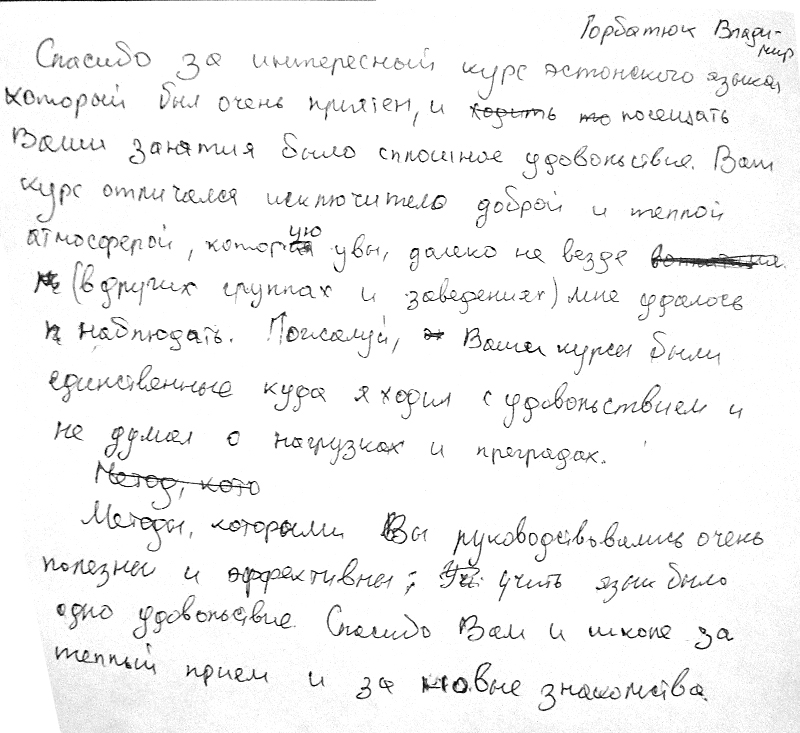 Горбатюк Влади-
мир
Спасибо за интересный курс эстонского языка,
который был очень приятен, и ходить то посещать
Ваши занятия было сплошное удовольствие. Ваш
курс отличался исключително доброй и теплой
атмосферой, которую увы, далеко не везде
(в других группах и заведениях) мне удалось
наблюдать. Пожалуй, Ваши курсы были
единственные куда я ходил с удовольствием и
не думал о нагрузках и преградах.
Метод, кото
Методы, которыми Вы руководствовались очень
полезны и эффективны; учить язык было
одно удовольствие. Спасибо Вам и школе за
теплый прием и за новые знакомства.